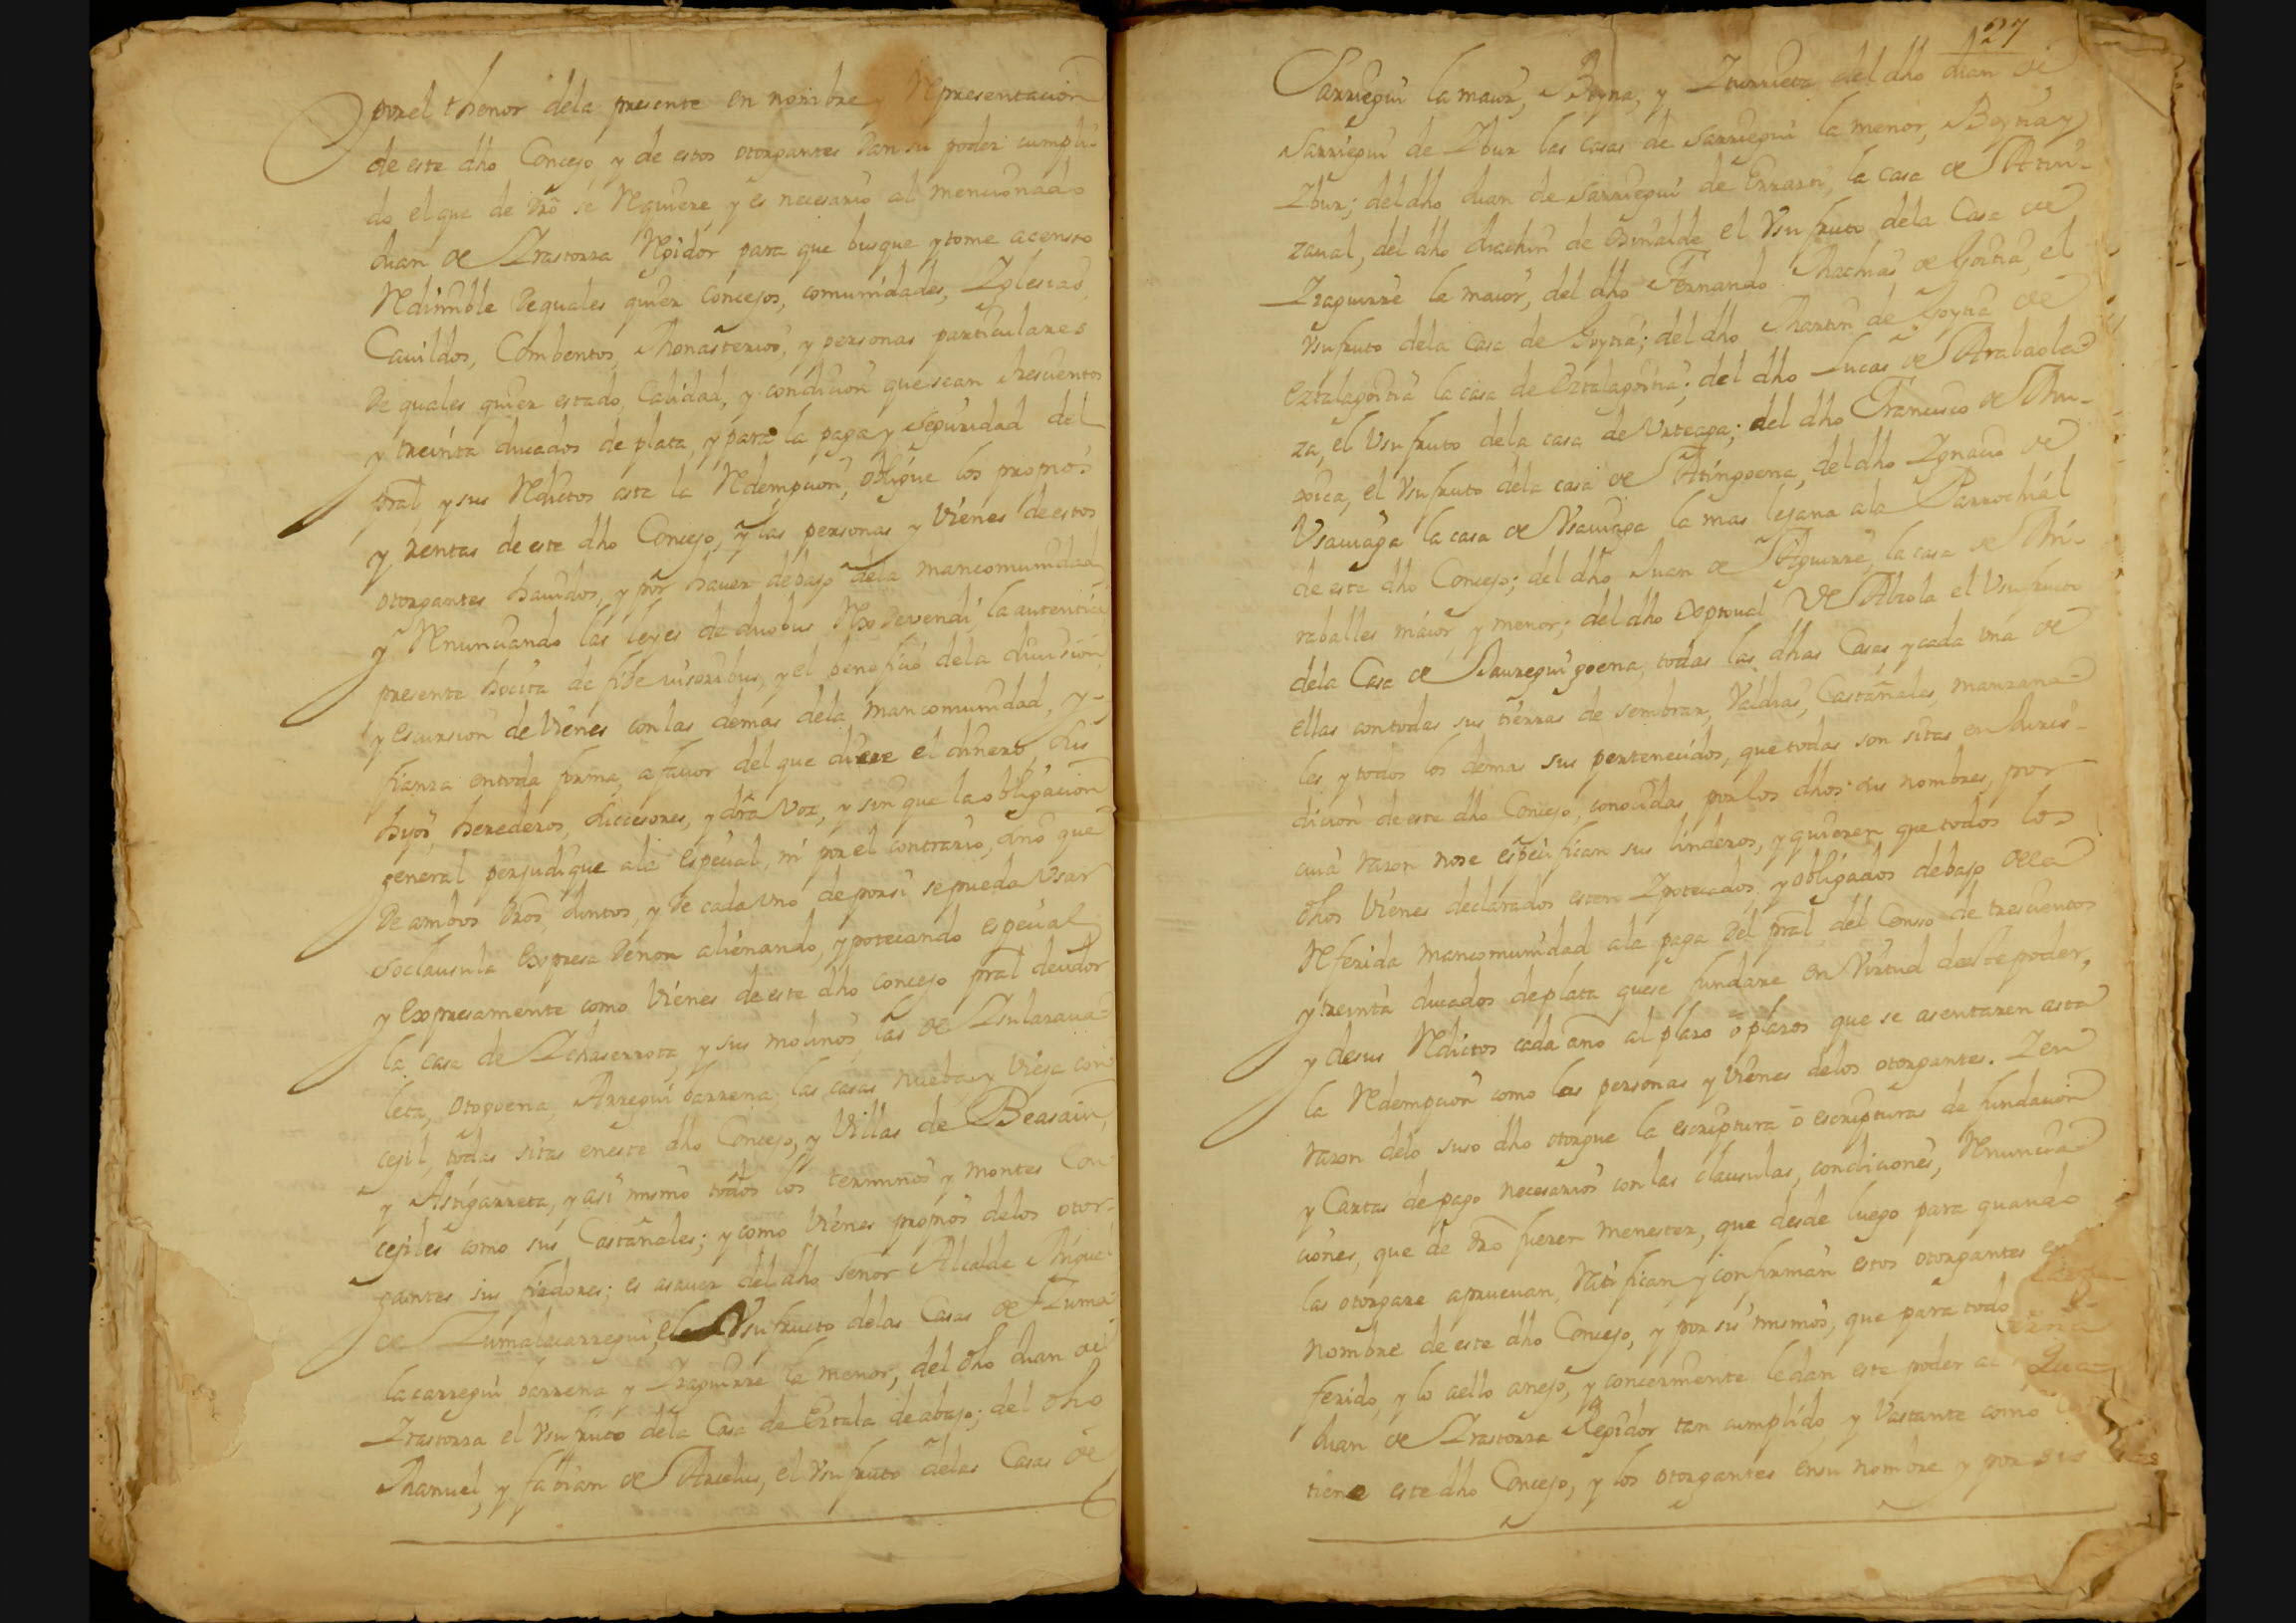 por el thenor dela presente en nombre y Representacion
de este dho Concejo y de estos otorgantes Dan su poder cumpli-
do el que de dro se Requiere y es necesario al mencionado
Juan de Yrastorza Regidor para que busque y tome acenso
Redimible de quales quier concejos, comunidades, Yglesias,
Cauildos, Combentos, Monasterios, y personas particulares
de quales quier estado, Calidad, y condicion que sean trescientos
y treinta ducados de plata, y para la paga y seguridad del
pral y sus Reditos asta la Redempcion, obligue los propios
y rentas de este dho Concejo, y las personas y Vienes de estos
otorgantes hauidos, y por hauer debajo dela mancomunidad
y Renunciando las leyes de duobus Rex Devendi, la autentica
presente hocita de fide iusoribus, y el beneficio dela diuision
y escursion de Vienes con las demas dela mancomunidad, y-
fianza en toda forma, a fauor del que diere el dinero, sus
hijos, herederos, subcesores, y dra Voz, y sin que la obligacion
general perjudique ala especial, ni por el contrario, sino que
de ambos dros Juntos, y de cada uno de por si se pueda Vsar
so clausula Expresa Denon alienando, ypotecando especial
y Expresamente como Vienes de este dho concejo pral deudor
la casa de Echaserrota, y sus molinos, las de Ysularaua-
leta, otogoena, Arregui barrena, las casas nueba y Vieja con-
cejil, todas sitas en este dho Concejo, y Villas de Beasain,
y Astigarreta, y asi mismo todos los terminos y montes Con-
cejiles como sus Castañales; y como Vienes propios delos otor-
gantes sus fiadores; es asauer del dho señor Alcalde Miguel
de Zumalacarregui, el Vsufructo delas Casas de Zuma-
lacarregui barrena y Yraguirre la menor, del dho Juan de
Yrastorza el Vsufruto dela Casa de Ertala de abajo; del dho
Manuel, y fabian de Arcelus, el Vsufruto delas Casas de
127
Sarriegui la maior, Goyna, y Yturrieta del dho Juan de
Sarriegui de Ybur las casas de Sarriegui la menor, Boyna y
Ybur; del dho Juan de Sarriegui de Errazti, la casa de
zaual, del dho Juachin de Obinalde el Vsufruto dela Casa de
Yraguirre la maior, del dho Fernando Machias de Goitia, el
Vsufruto dela Casa de Goytia; del dho Martin de Goytia de
Ertalagoitia la casa de Ertalagoitia; del dho Lucas de Arabaola-
za, el Vsufruto dela casa de Vrteaga; del dho Francisco de Mu-
xica, el Vsufruto dela casa de Atingoena, del dho Ygnacio de
Vsauiaga la casa de Vsauiaga la mas lejana ala Parrochial
de este dho Concejo; del dho Juan de Aguirre, la casa de Mi-
raballes maior y menor; del dho Xptoual de Alzola el Vsufruto
dela Casa de Jauregui goena, todas las dhas Casas y cada vna de
ellas con todas sus tierras de sembrar, Valdias, Castañales, manzana-
les y todos los demas sus pertenecidos, que todas son sitas en Juris-
dicion de este dho Concejo, conocidas por los dhos sus nombres, por
cuia razon no se especifican sus linderos, y quieren que todos los
dhos Vienes declarados esten Ypotecados, y obligados debajo dela
Referida mancomunidad ala paga del pral del Censo de trescientos
y treinta ducados de plata que se fundare en Virtud de este poder,
y de sus Reditos cada año al plazo o plazos que se asentaren asta
la Redempcion como las personas y Vienes delos otorgantes. Y en
razon delo suso dho otorgue la escriptura o escripturas de fundacion
y Cartas de pago necesarios con las clausulas, condiciones, Renuncia-
ciones, que de dro fueren menester, que desde luego para quando
las otorgare aprueuan, Ratifican y confirman estos otorgantes en
nombre de este dho Concejo, y por si mismos, que para todo
ferido, y lo aello anejo, y concerniente le dan este poder al
Juan de Yrastorza Regidor tan cumplido y Vastante como
tiene este dho Concejo, y los otorgantes en su nombre y por sus